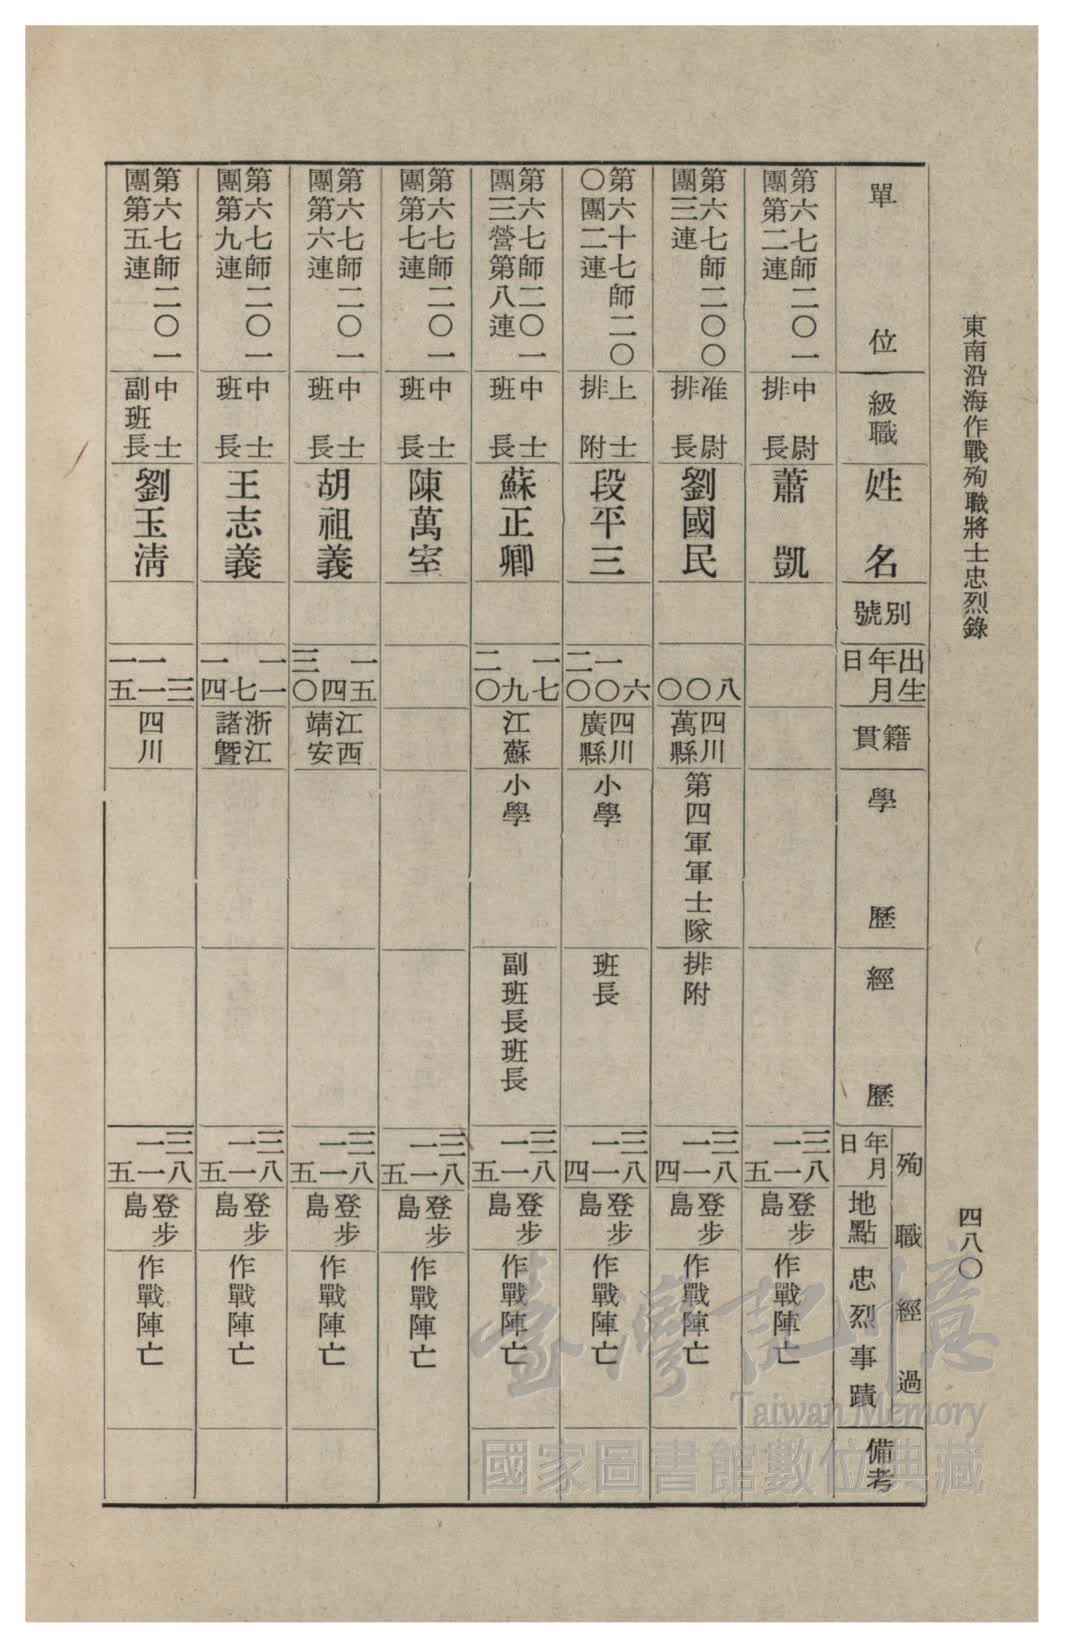 東南沿海作戰殉職將士忠烈錄
四八〇
單位
級職
姓名
別號
出生
年月
日
籍貫
學歷
經歷
殉職經過
年月
日
地點
忠烈事蹟
備考
第六七師二〇一
團第二連
中尉
排長
蕭凱
三八
一一
五
登步
島
作戰陣亡
第六七師二〇〇
團三連
准尉
排長
劉國民
八
〇
〇
四川
萬縣
第四軍軍士隊
排附
三八
一一
四
登步
島
作戰陣亡
第六十七師二〇
〇團二連
上士
排附
段平三
六
一〇
二〇
四川
廣縣
小學
班長
三八
一一
四
登步
島
作戰陣亡
第六七師二〇一
團三營第八連
中士
班長
蘇正卿
一七
九
二〇
江蘇
小學
副班長班長
三八
一一
五
登步
島
作戰陣亡
第六七師二〇一
團第七連
中士
班長
陳萬室
三八
一一
五
登步
島
作戰陣亡
第六七師二〇一
團第六連
中士
班長
胡祖義
一五
四
三〇
江西
靖安
三八
一一
五
登步
島
作戰陣亡
第六七師二〇一
團第九連
中士
班長
王志義
一一
七
一四
浙江
諸暨
三八
一一
五
登步
島
作戰陣亡
第六七師二〇一
團第五連
中士
副班長
劉玉清
三
一一
一五
四川
三八
一一
五
登步
島
作戰陣亡
臺灣記憶
Taiwan Memory
國家圖書館數位典藏